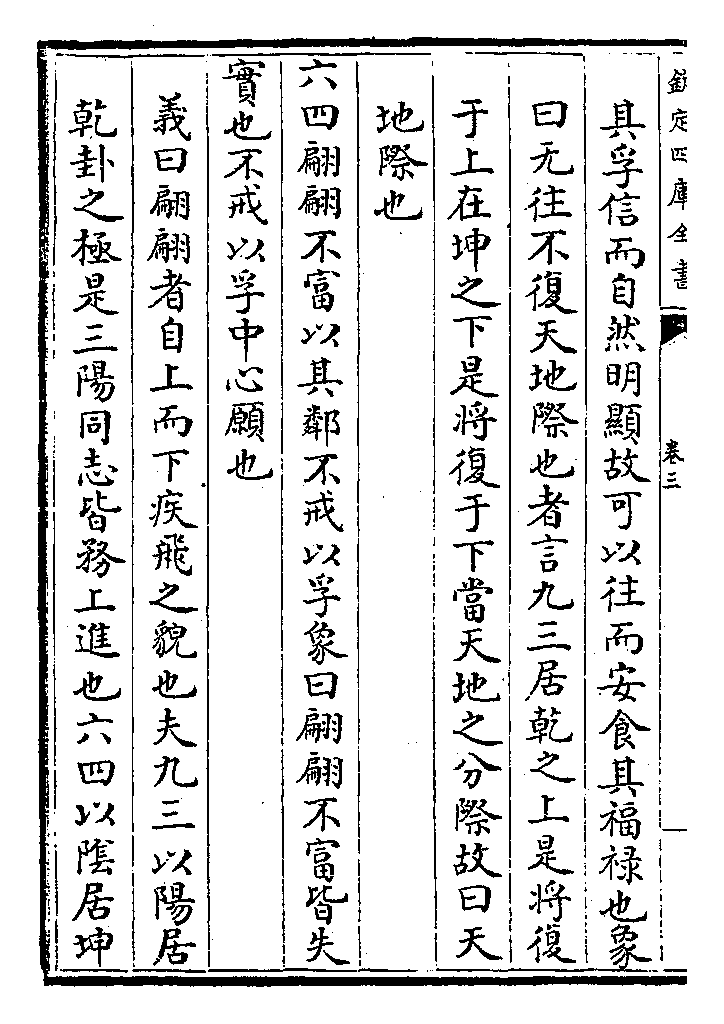 欽定四庫全書
卷三
其孚信而自然明顯故可以往而安食其福祿也象
曰无往不復天地際也者言九三居乾之上是將復
于上在坤之下是將復于下當天地之分際故曰天
地際也
六四翩翩不富以其鄰不戒以孚象曰翩翩不富皆失
實也不戒以孚中心願也
義曰翩翩者自上而下疾飛之貌也夫九三以陽居
乾卦之極是三陽同志皆務上進也六四以陰居坤